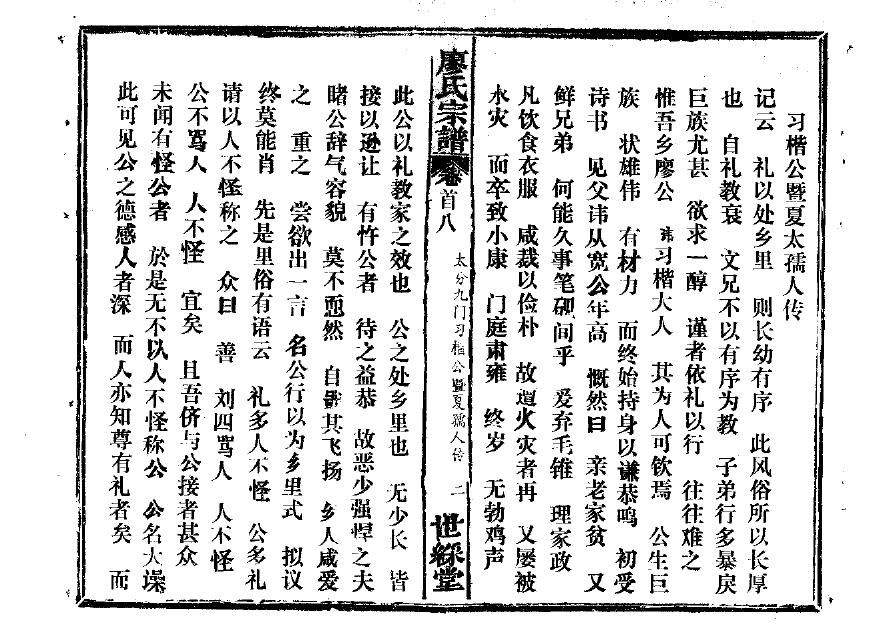 习楷公暨夏太孺人传
记云 礼以处乡里 则长幼有序 此风俗所以长厚
也 自礼教衰 文兄不以有序为教 子弟行多暴戾
巨族尤甚 欲求一醇 谨者依礼以行 往往难之
惟吾乡廖公 讳习楷大人 其为人可钦焉 公生巨
族 状雄伟 有材力 而终始持身以谦恭鸣 初受
诗书 见父讳从宽公年高 慨然曰 亲老家贫 又
鲜兄弟 何能久事笔砚间乎 爰弃毛锥 理家政
凡饮食衣服 咸裁以俭朴 故遭火灾者再 又屡被
水灾 而卒致小康 门庭肃雍 终岁 无勃鸡声
廖氏宗譜 卷首八 太分九门习楷公暨夏孺人传 二 世綵堂
此公以礼教家之效也 公之处乡里也 无少长 皆
接以逊让 有忤公者 待之益恭 故恶少强悍之夫
睹公辞气容貌 莫不恧然 自戢其飞扬 乡人咸爱
之 重之 尝欲出一言 名公行以为乡里式 拟议
终莫能肖 先是里俗有语云 礼多人不怪 公多礼
请以人不怪称之 众曰 善 刘四骂人 人不怪
公不骂人 人不怪 宜矣 且吾侪与公接者甚众
未闻有怪公者 於是无不以人不怪称公 公名大噪
此可见公之德感人者深 而人亦知尊有礼者矣 而